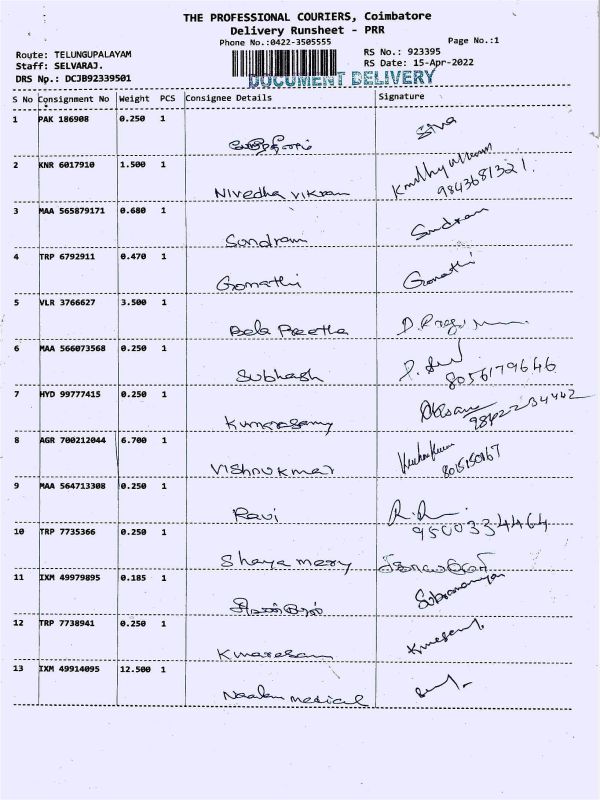 THE PROFESSIONAL COURIERS, Coimbatore
Delivery Runsheet - PRR
Phone No.:0422-3505555
Page No.:1
Route: TELUNGUPALAYAM
RS No.: 923395
Staff: SELVARAJ.
RS Date: 15-Apr-2022
DRS Np.: DCJB92339501
DOCUMENT DELIVERY
S No Consignment No Weight PCS Consignee Details Signature
1 PAK 186908 0.250 1
Siva
2 KNR 6017910 1.500 1
Nivedha vikram
9843681321.
3 MAA 565879171 0.680 1
Sundram
Sondram
4 TRP 6792911 0.470 1
Gomathi Gomathi
5 VLR 3766627 3.500 1
Bela Preetha
6 MAA 566073568 0.250 1
Subhash 8056179646
7 HYD 99777415 0.250 1
Kumarasamy
8 AGR 700212044 6.700 1
Vishnukmar
9 MAA 564713308 0.250 1
Ravi R.R.
9500334464
10 TRP 7735366 0.250 1
Shaya mery
11 IXM 49979895 0.185 1
12 TRP 7738941 0.250 1
Kmarasam
13 IXM 49914095 12.500 1
Naalam medical